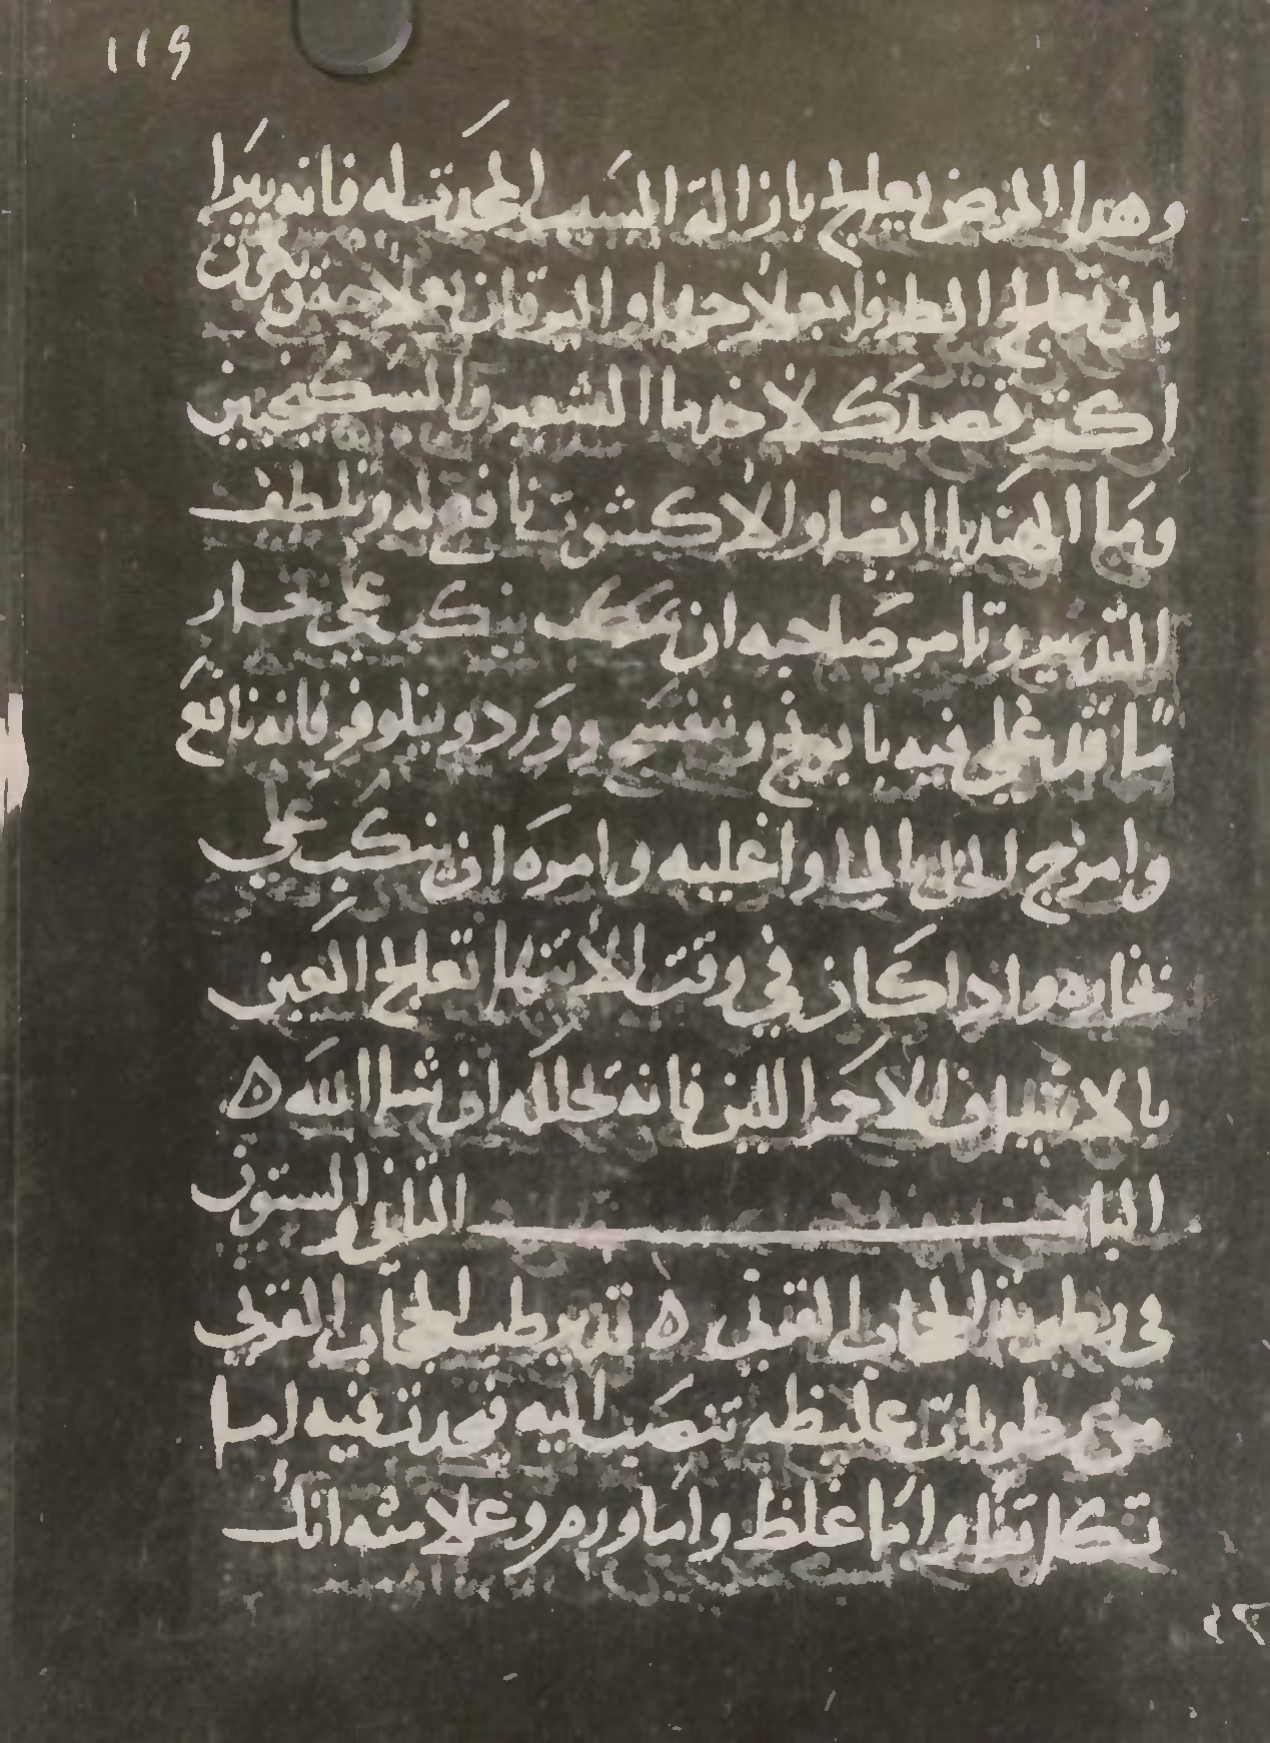 ١١٩
وهدا المرض يعالج بازالة السبب المحدث له فانه يبرا
بان تعالج الطرفا بعلاجها واليرقان بعلاجه يكون
اكثر قصدك لاخد ما الشعير والسكنجبين
وما الهندبا ايضا والاكشوث نافع له وتلطف
التدبير وتامر صاحبه ان ينكب على بخار
ما قد غلي فيه بابونج وبنفسج وورد ونيلوفر فانه نافع
وامزج الخل بالما واغليه وامره ان ينكب على
بخاره واذا كان في وقت الانتها تعالج العين
بالاشياف الاحمر اللين فانه تحلله ان شا الله ه
الباب الثاني والستون
في رطوبة الحجاب القرني ه قد يرطب الحجاب القرني
من رطوبات غليظه تنصب اليه فيحدث فيه اما
ثقل واما غلظ واما ورم وعلامته انك